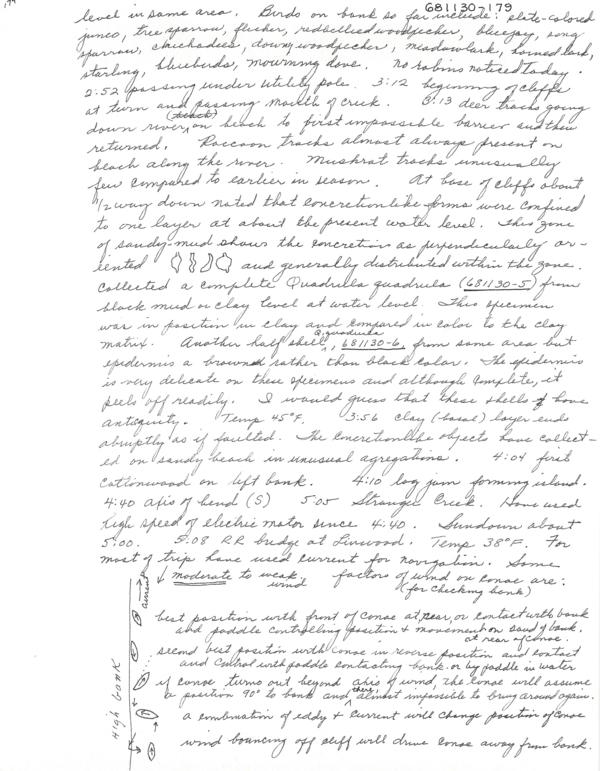 681130-179
level in same area. Birds on bank so far include: slate-colored
junco, tree sparrow, flicker, redbellied woodpecker, bluejay, song
sparrow, chickadees, downy woodpecker, meadowlark, horned lark,
starling, bluebirds, mourning dove. No robins noticed today.
2:52 passing under utility pole. 3:12 beginning of cliffs
at turn and passing mouth of creek. 3:13 deer tracks going
down river, on beach to first impossible barrier and then
returned. Raccoon tracks almost always present on
beach along the river. Muskrat tracks unusually
few compared to earlier in season. At base of cliffs about
1/2 way down noted that concretionlike forms were confined
to one layer at about the present water level. This zone
of sandy-mud shows the concretion as perpendicularly or-
iented and generally distributed within the zone.
Collected a complete Quadrula quadrula (681130-5) from
black mud or clay level at water level. This specimen
was in position in clay and compared in color to the clay
matrix. Another half shell, Q. quadrula, 681130-6, from same area but
epidermis a brown rather than black color. The epidermis
is very delicate on these specimens and although complete, it
peels off readily. I would guess that these shells have
antiquity. Temp 45°F. 3:56 clay (basal) layer ends
abruptly as if faulted. The concretionlike objects have collect-
ed on sandy beach in unusual agregations. 4:04 first
cottonwood on left bank. 4:10 log jam forming island.
4:40 axis of bend (S) 5:05 Stranger Creek. Have used
high speed of electric motor since 4:40. Sundown about
5:00. 5:08 RR bridge at Linwood. Temp 38°F. For
most of trip have used current for navigation. Some
moderate to weak wind factors of wind on canoe are:
(for checking bank)
current
High bank
best position with front of canoe at rear, or contact with bank
and paddle controlling position + movement on sand of bank.
at rear of canoe.
second best position with canoe in reverse position and contact
and control with paddle contacting bank or by paddle in water
if canoe turns out beyond axis of wind, the canoe will assume
a position 90° to bank and there, almost impossible to bring around again.
a combination of eddy + current will change position of canoe
wind bouncing off cliff will drive canoe away from bank.